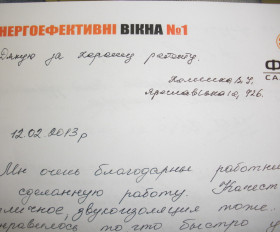 НЕРГОЕФЕКТИВНІ ВІКНА №1
Дякую за хорошу роботу.
Ярославівська, 926.
12.02.2013 р
Мы очень благодарны работни
сделанную работу. Качест
личное, звукоизоляция тоже..
нравилось то что быстро у